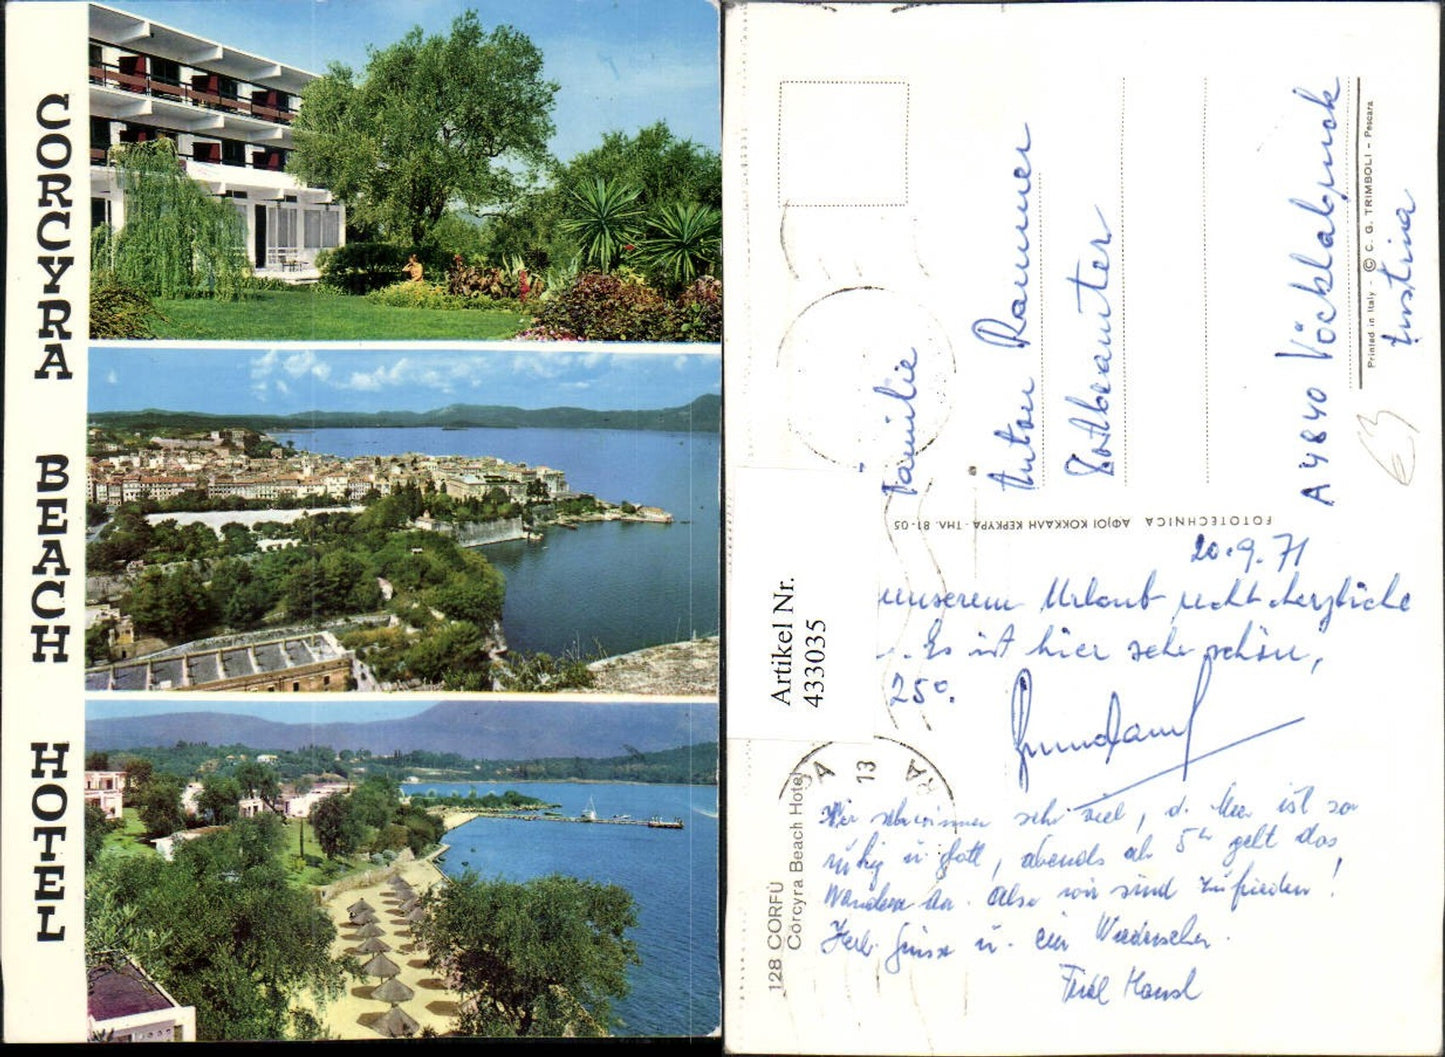 CORCYRA BEACH HOTEL
Artikel Nr.
433035
128 CORFÙ
Corcyra Beach Hotel
FOTOTECHNICA ΑΦ)ΟΙ ΚΟΚΚΑΛΗ ΚΕΡΚΥΡΑ - ΤΗΛ. 81-05
Printed in Italy - © C. G. TRIMBOLI - Pescara
Familie
Anton
Postbeamter
A 4840 Vöcklabruck
Austria
20.9.71
unserem Urlaub recht herzliche
Es ist hier sehr schön,
25°.
Wir schwimmen sehr viel, d. Meer ist so
ruhig u. , abends ab 5h geht das
Also wir sind zufrieden!
Herzl. Grüsse u. ein Wiedersehen.
Hansl
13